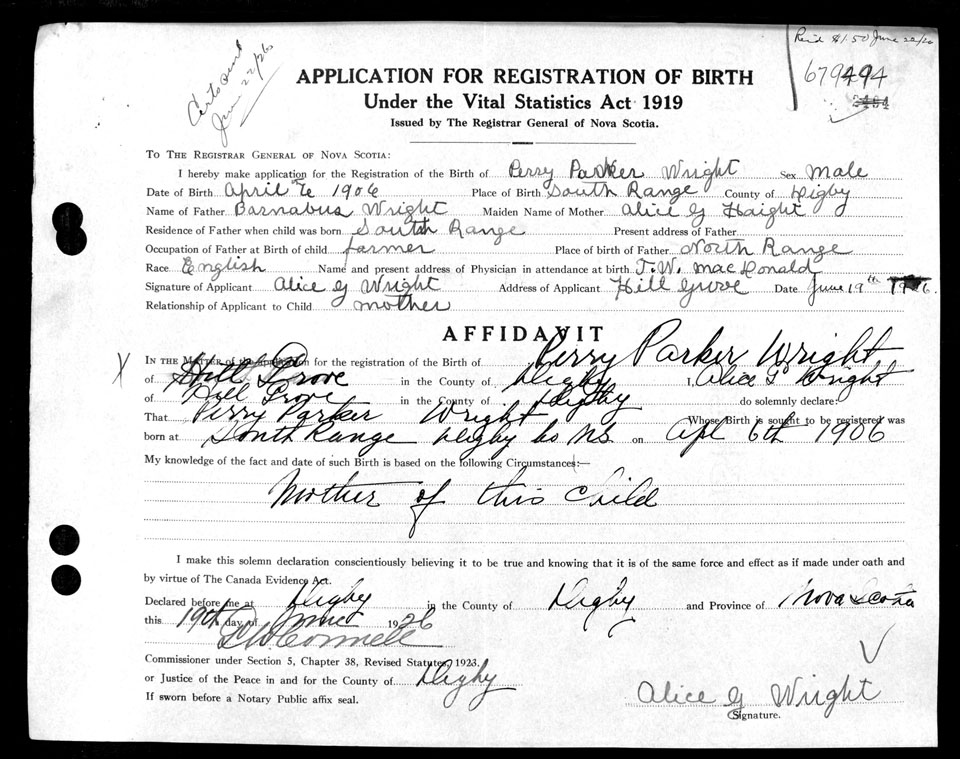 Rec'd $1.50 June 22/26
Certs sent
June 22/26
679494
APPLICATION FOR REGISTRATION OF BIRTH
Under the Vital Statistics Act 1919
Issued by The Registrar General of Nova Scotia.
TO THE REGISTRAR GENERAL OF NOVA SCOTIA:
I hereby make application for the Registration of the Birth of Perry Parker Wright Sex Male
Date of Birth April 6 1906 Place of Birth South Range County of Digby
Name of Father Barnabus Wright Maiden Name of Mother Alice G Haight
Residence of Father when child was born South Range Present address of Father
Occupation of Father at Birth of child farmer Place of birth of Father North Range
Race English Name and present address of Physician in attendance at birth T. W. MacDonald
Signature of Applicant Alice G Wright Address of Applicant Hill Grove Date June 19th 1926.
Relationship of Applicant to Child mother
AFFIDAVIT
IN THE MATTER of the application for the registration of the Birth of Perry Parker Wright
of Hill Grove in the County of Digby I, Alice G Wright
of Hill Grove in the County of Digby do solemnly declare:
That Perry Parker Wright Whose Birth is sought to be registered was
born at South Range Digby Co N.S. on Apl 6th 1906
My knowledge of the fact and date of such Birth is based on the following Circumstances:—
Mother of this Child
I make this solemn declaration conscientiously believing it to be true and knowing that it is of the same force and effect as if made under oath and
by virtue of The Canada Evidence Act.
Declared before me at Digby in the County of Digby and Province of Nova Scotia
this 19th day of June 1926
Commissioner under Section 5, Chapter 38, Revised Statutes, 1923.
or Justice of the Peace in and for the County of Digby
If sworn before a Notary Public affix seal.
Alice G Wright
Signature.